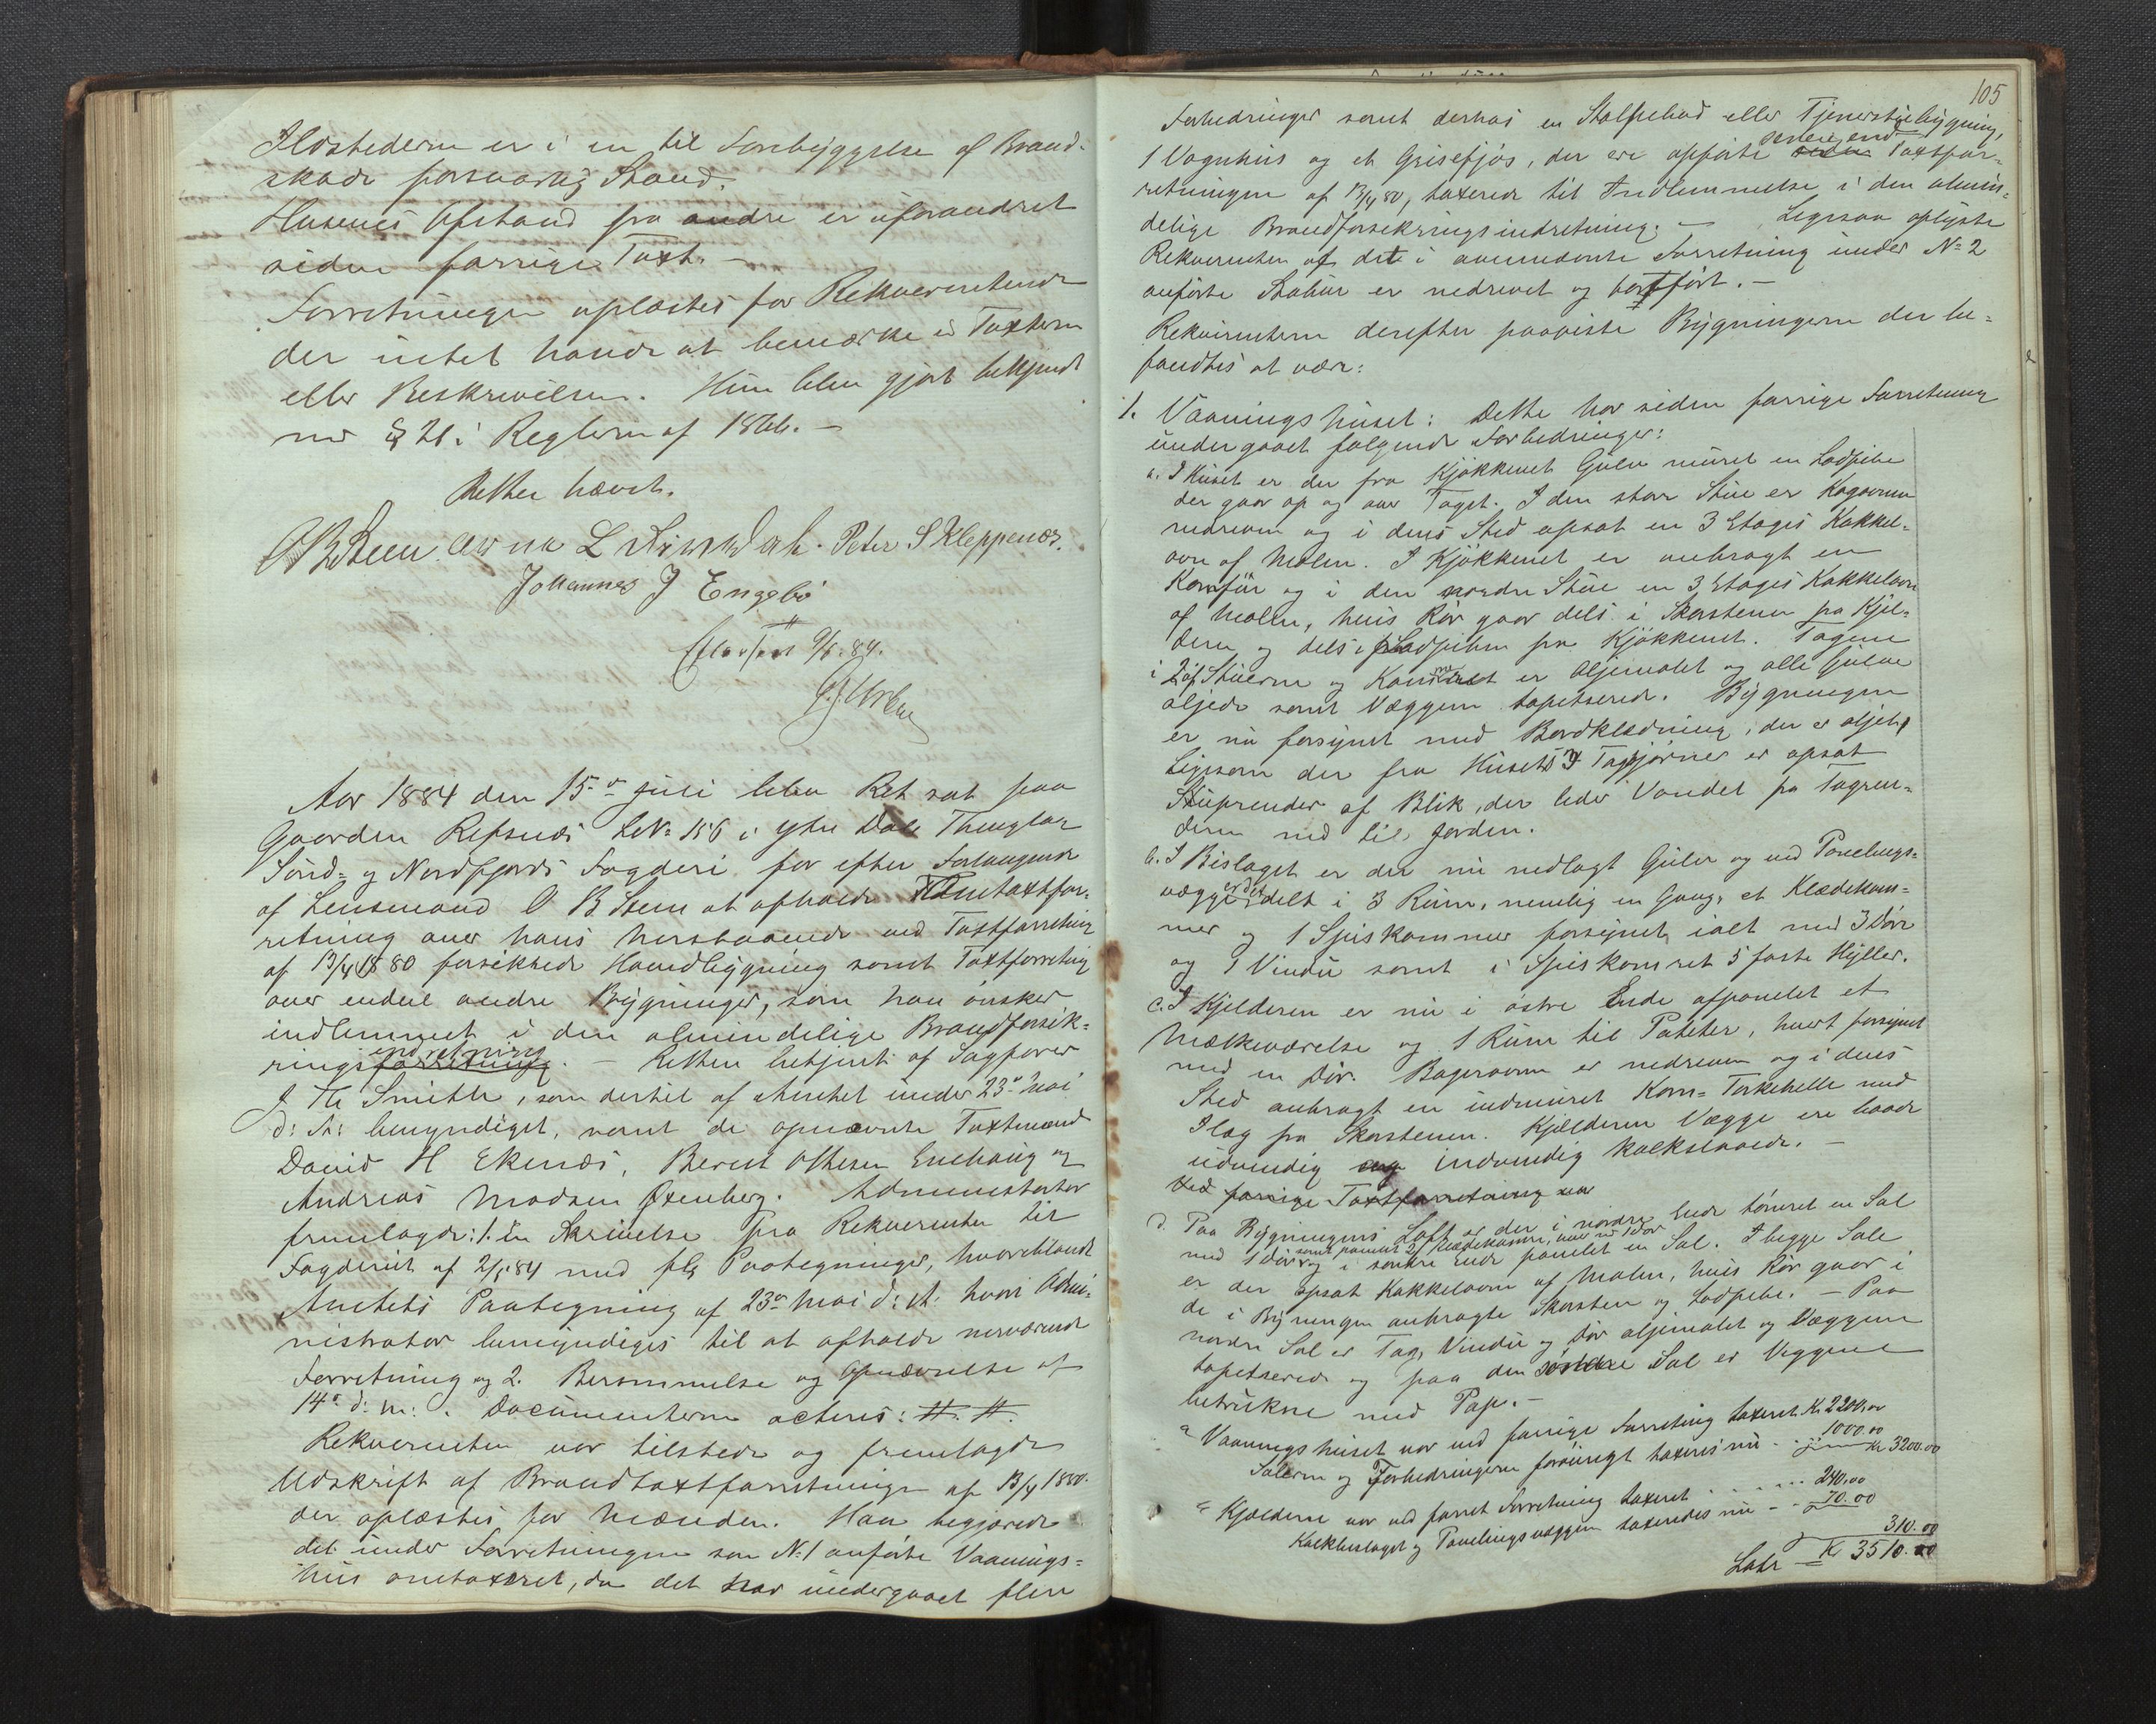 Ildstederne er i en til Forebyggelse af Brand-
skade forsvarlig Stand.
Husenes Afstand fra andre er uforandret
siden forrige Taxt. -
Forretningen oplæstes for Rekvirentinde
der intet havde at bemærke ved Taxterne
eller Beskrivelsen. Hun blev gjort bekjendt
med § 26 i Reglerne af 1846. -
Retten hævet.
O B Steen. Peter S Kleppenæs.
Johannes J Engebö
9/8.84.
Aar 1884 den 15de Juli blev Ret sat paa
Gaarden Refsnæs LNo 156 i Ytre Dale Thinglag
Sönd- og Nordfjords Fogderi for efter Forlangende
af Lensmand O B Steen at afholde Omtaxtfor-
retning over hans herstaaende ved Taxtforretning
af 13/4 1880 forsikrede Hovedbygning samt Taxtforretning
over endeel andre Bygninger, som han ønsker
indlemmet i den almindelige Brandforsik-
rings indretning forretning. - Retten betjent af Sagfører
J Th Smith, som dertil af Amtet under 23de Mai
d: A: bemyndiget, samt de opnævnte Taxtmænd
David H Ekenæs, Berent Olsen Enehaug og
Andreas Madsen Oxenberg. Administrator
fremlagde: 1. En Skrivelse fra Rekvirenten til
Fogderiet af 2/5 84 med flg Paategninger, hvoriblandt
Amtets Paategning af 23de Mai d: A: hvori Admi-
nistrator bemyndiges til at afholde nærværende
Forretning og 2. Berammelse og Opnævnelse af
14de d: m:. Documenterne acteres: #. #.
Rekvirenten var tilstede og fremlagde
Udskrift af Brandtaxtforretninge af 13/4 1880.
der oplæstes for Mændene. Han begjærede
det under Forretningen som No 1 anførte Vaanings-
huus omtaxeret, da det har undergaaet flere
105
Forbedringer samt derhos en Stolpebod eller Tjenerstuebygning,
1 Vognhus og et Grisefjøs, der ere opførte senere end siden Taxtfor-
retningen af 13/4 80, taxerede til Indlemmelse i den almin-
delige Brandforsikringsindretning. - Ligesaa oplyste
Rekvirenten at det i omrendte Forretning under No 2
anførte Stabur er nedrevet og bortført. -
Rekvirenten derefter paaviste Bygningerne der be-
fandtes at være:
1. Vaaningshuset: Dette har siden forrige Forretning
undergaaet følgende Forbedringer:
a. I Huset er der fra Kjøkkenet Gulv muret en Lodpibe
der gaar op og over Taget. I den store Stue er Kogeovnen
nedreven og i dens Sted opsat en 3 Etages Kakkel-
ovn af Malm. I Kjøkkenet er anbragt en
Komfur og i den nordre Stue en 3 Etages Kakkelovn
af Malm, hvis Rør gaar dels i Skorstenen fra Kjel-
deren og dels i Lodpiben fra Kjøkkenet. Tagene
i 2 af Stuerne og Kammeret er oljemalet og alle Gulve
oljede samt Væggene tapetserede. Bygningen
er nu forsynet med Bordklædning, der er oljet,
ligesom der fra Husets 4 Taghjørner er opsat
Stuprender af Blik, der leder Vandet fra Tagren-
derne ned til Jorden.
b. I Bislaget er der nu nedlagt Gulv og ved Panelings-
vægge er det delt i 3 Rum, nemlig en Gang, et Klædekam-
mer og 1 Spiskammer forsynet ialt med 3 Dør
og 1 Vindu samt i Spiskamret 5 faste Hyller.
c. I Kjelderen er nu i østre Ende afpanelet et
Melkeværelse og 1 Rum til Poteter, hvert forsynet
med en Dør. Bagerovnen er nedreven og i dens
Sted anbragt en indmuret Korn-Tørkehelle med
Ilæg fra Skorstenen. Kjælderens Vægge ere baade
udvendig og indvendig kalkslaaede. -
Ved forrige Taxtforretning var
d. Paa Bygningens Loft er der i nordre Ende tømret en Sal
med 1 Dør samt panelet 2 Klædekamre, hver med 1 Dør og i søndre Ende panelet en Sal. I begge Sale
er der opsat Kakkelovn af Malm, hvis Rør gaar i
de i Bygningen anbragte Skorsten og Lodpibe. - Paa
nordre Sal er Tag, Vindu og Dør oljemalet og Væggene
tapetserede og paa den søndre Sal er Væggene
betrukne med Pap. -
Vaaningshuset var ved forrige Forretning taxeret Kr 2200.00
Salene og Forbedringerne forøvrigt taxeres nu . . 1000.00 Kr 3200.00
Kjælderen var ved forret Forretning taxeret . . . . . . 240.00
Kalkbeslaget og Panelingsvæggene taxeredes nu - . . 70.00
310.00
Labr Kr 3510.00